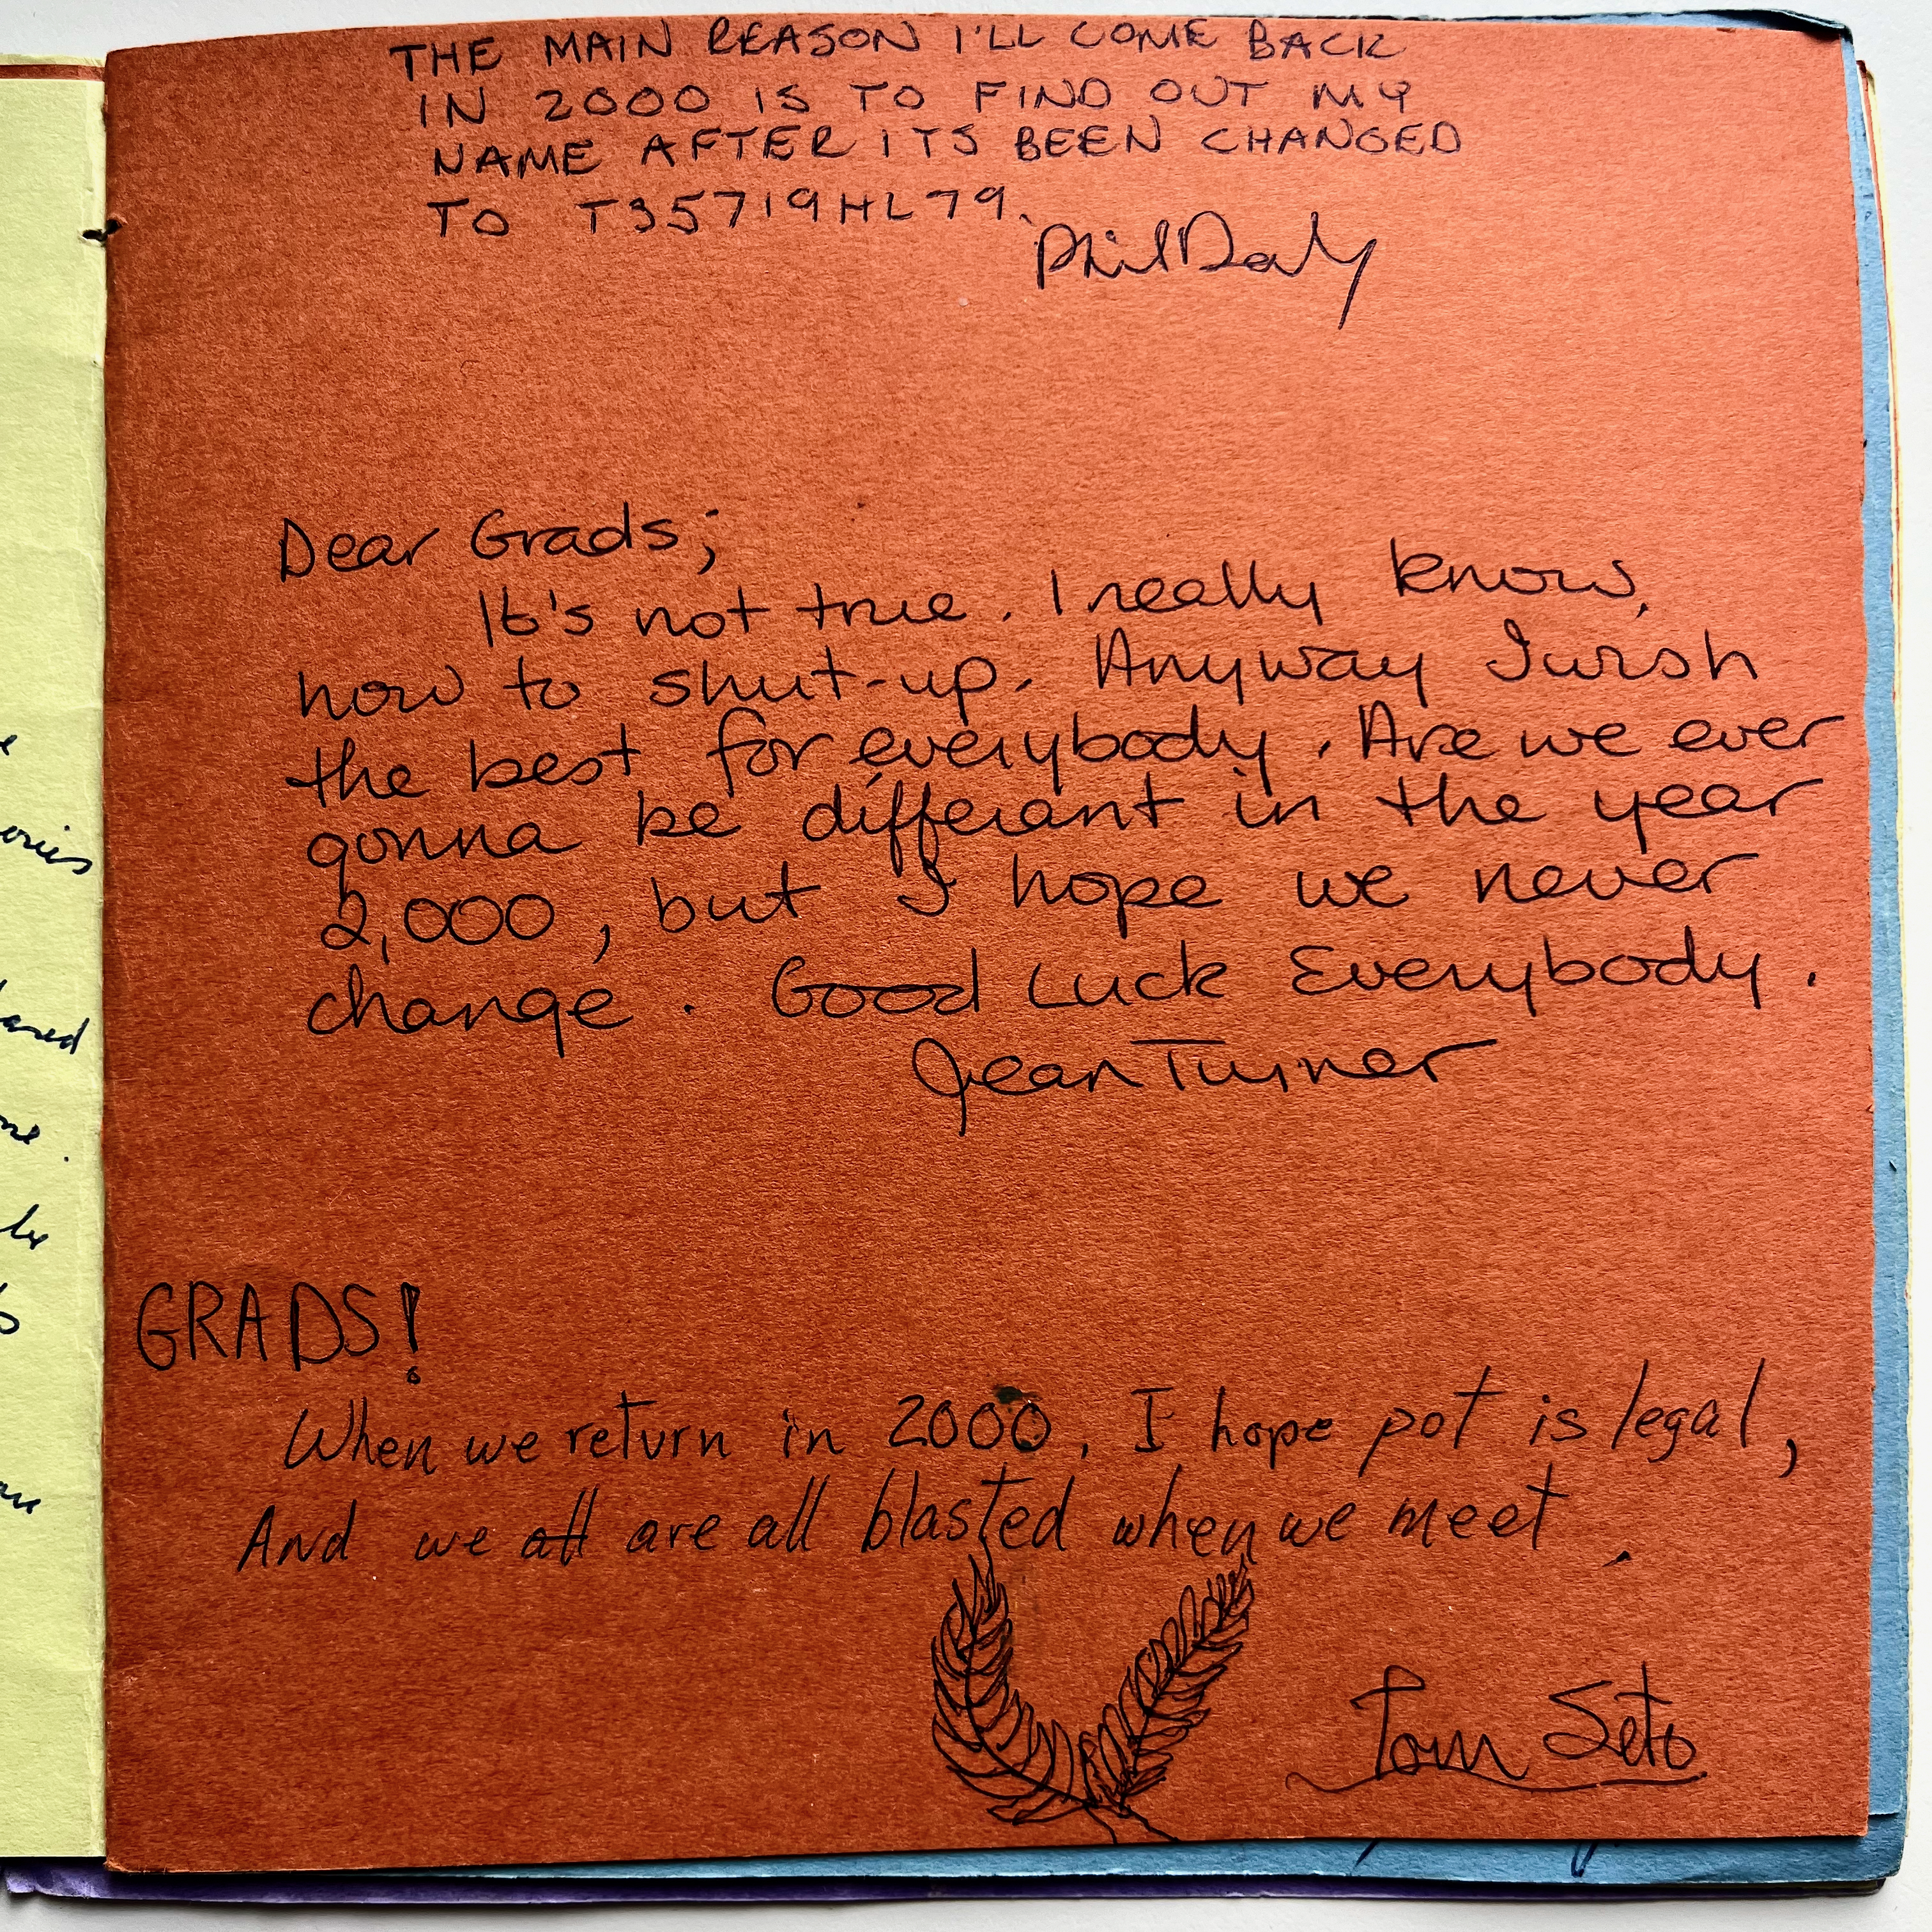 THE MAIN REASON I'LL COME BACK
IN 2000 IS TO FIND OUT MY
NAME AFTER ITS BEEN CHANGED
TO T35719HL79.
Phil Daly
Dear Grads;
It's not true. I really know,
how to shut-up. Anyway I wish
the best for everybody. Are we ever
gonna be different in the year
2,000, but I hope we never
change. Good Luck Everybody.
Jean Turner
GRADS!
When we return in 2000, I hope pot is legal,
And we all are all blasted when we meet.
Tom Seto